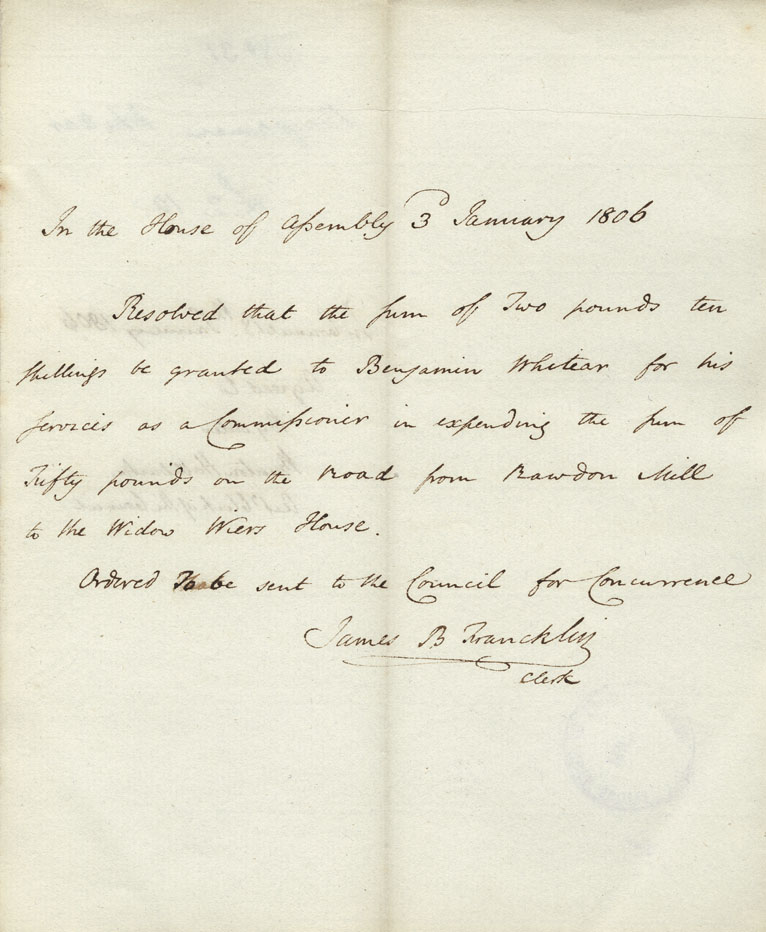 In the House of Assembly 3ᵈ January 1806
Resolved that the sum of Two pounds ten
shillings be granted to Benjamin Whitear for his
services as a Commissioner in expending the sum of
Fifty pounds on the Road from Rawdon Mill
to the Widow Wiers House.
Ordered To be sent to the Council for Concurrence
James B Francklin
Clerk